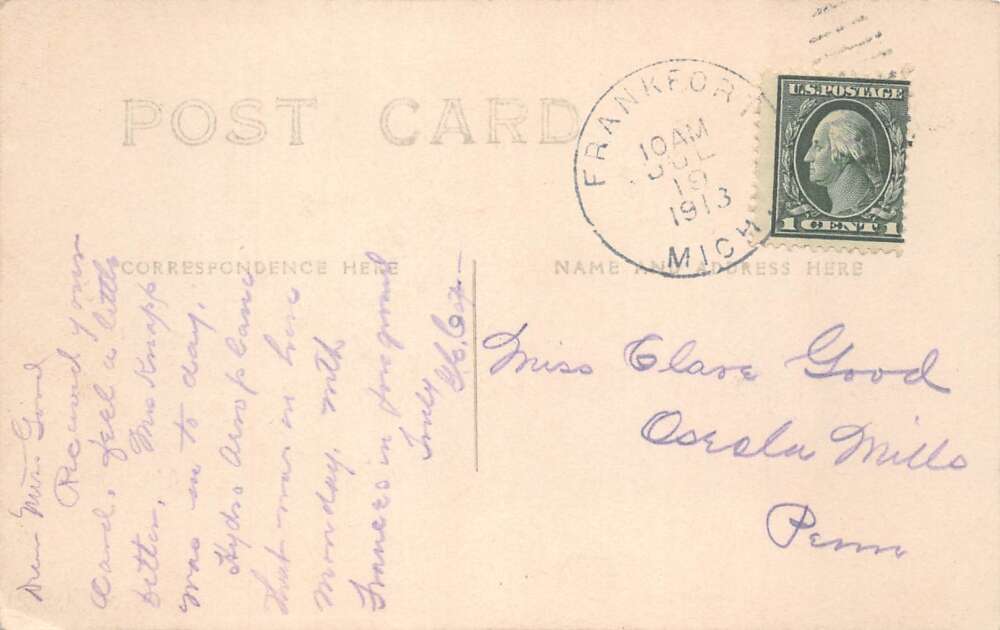 POST CARD
FRANKFORT
10 AM
JUL
19
1913
MICH
U.S. POSTAGE
1 CENT 1
CORRESPONDENCE HERE
NAME AND ADDRESS HERE
Dear Miss Good
Recieved your
Card, feel a little
better, Mrs Knapp
was in to day.
Hydro Aeroplane
that was in here
Monday, with
in foreground
Truly
Miss Clare Good
Osceola Mills
Penn